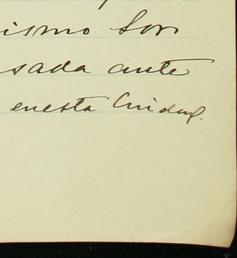 ismo Sor
sada ante
enesta Ciudad.